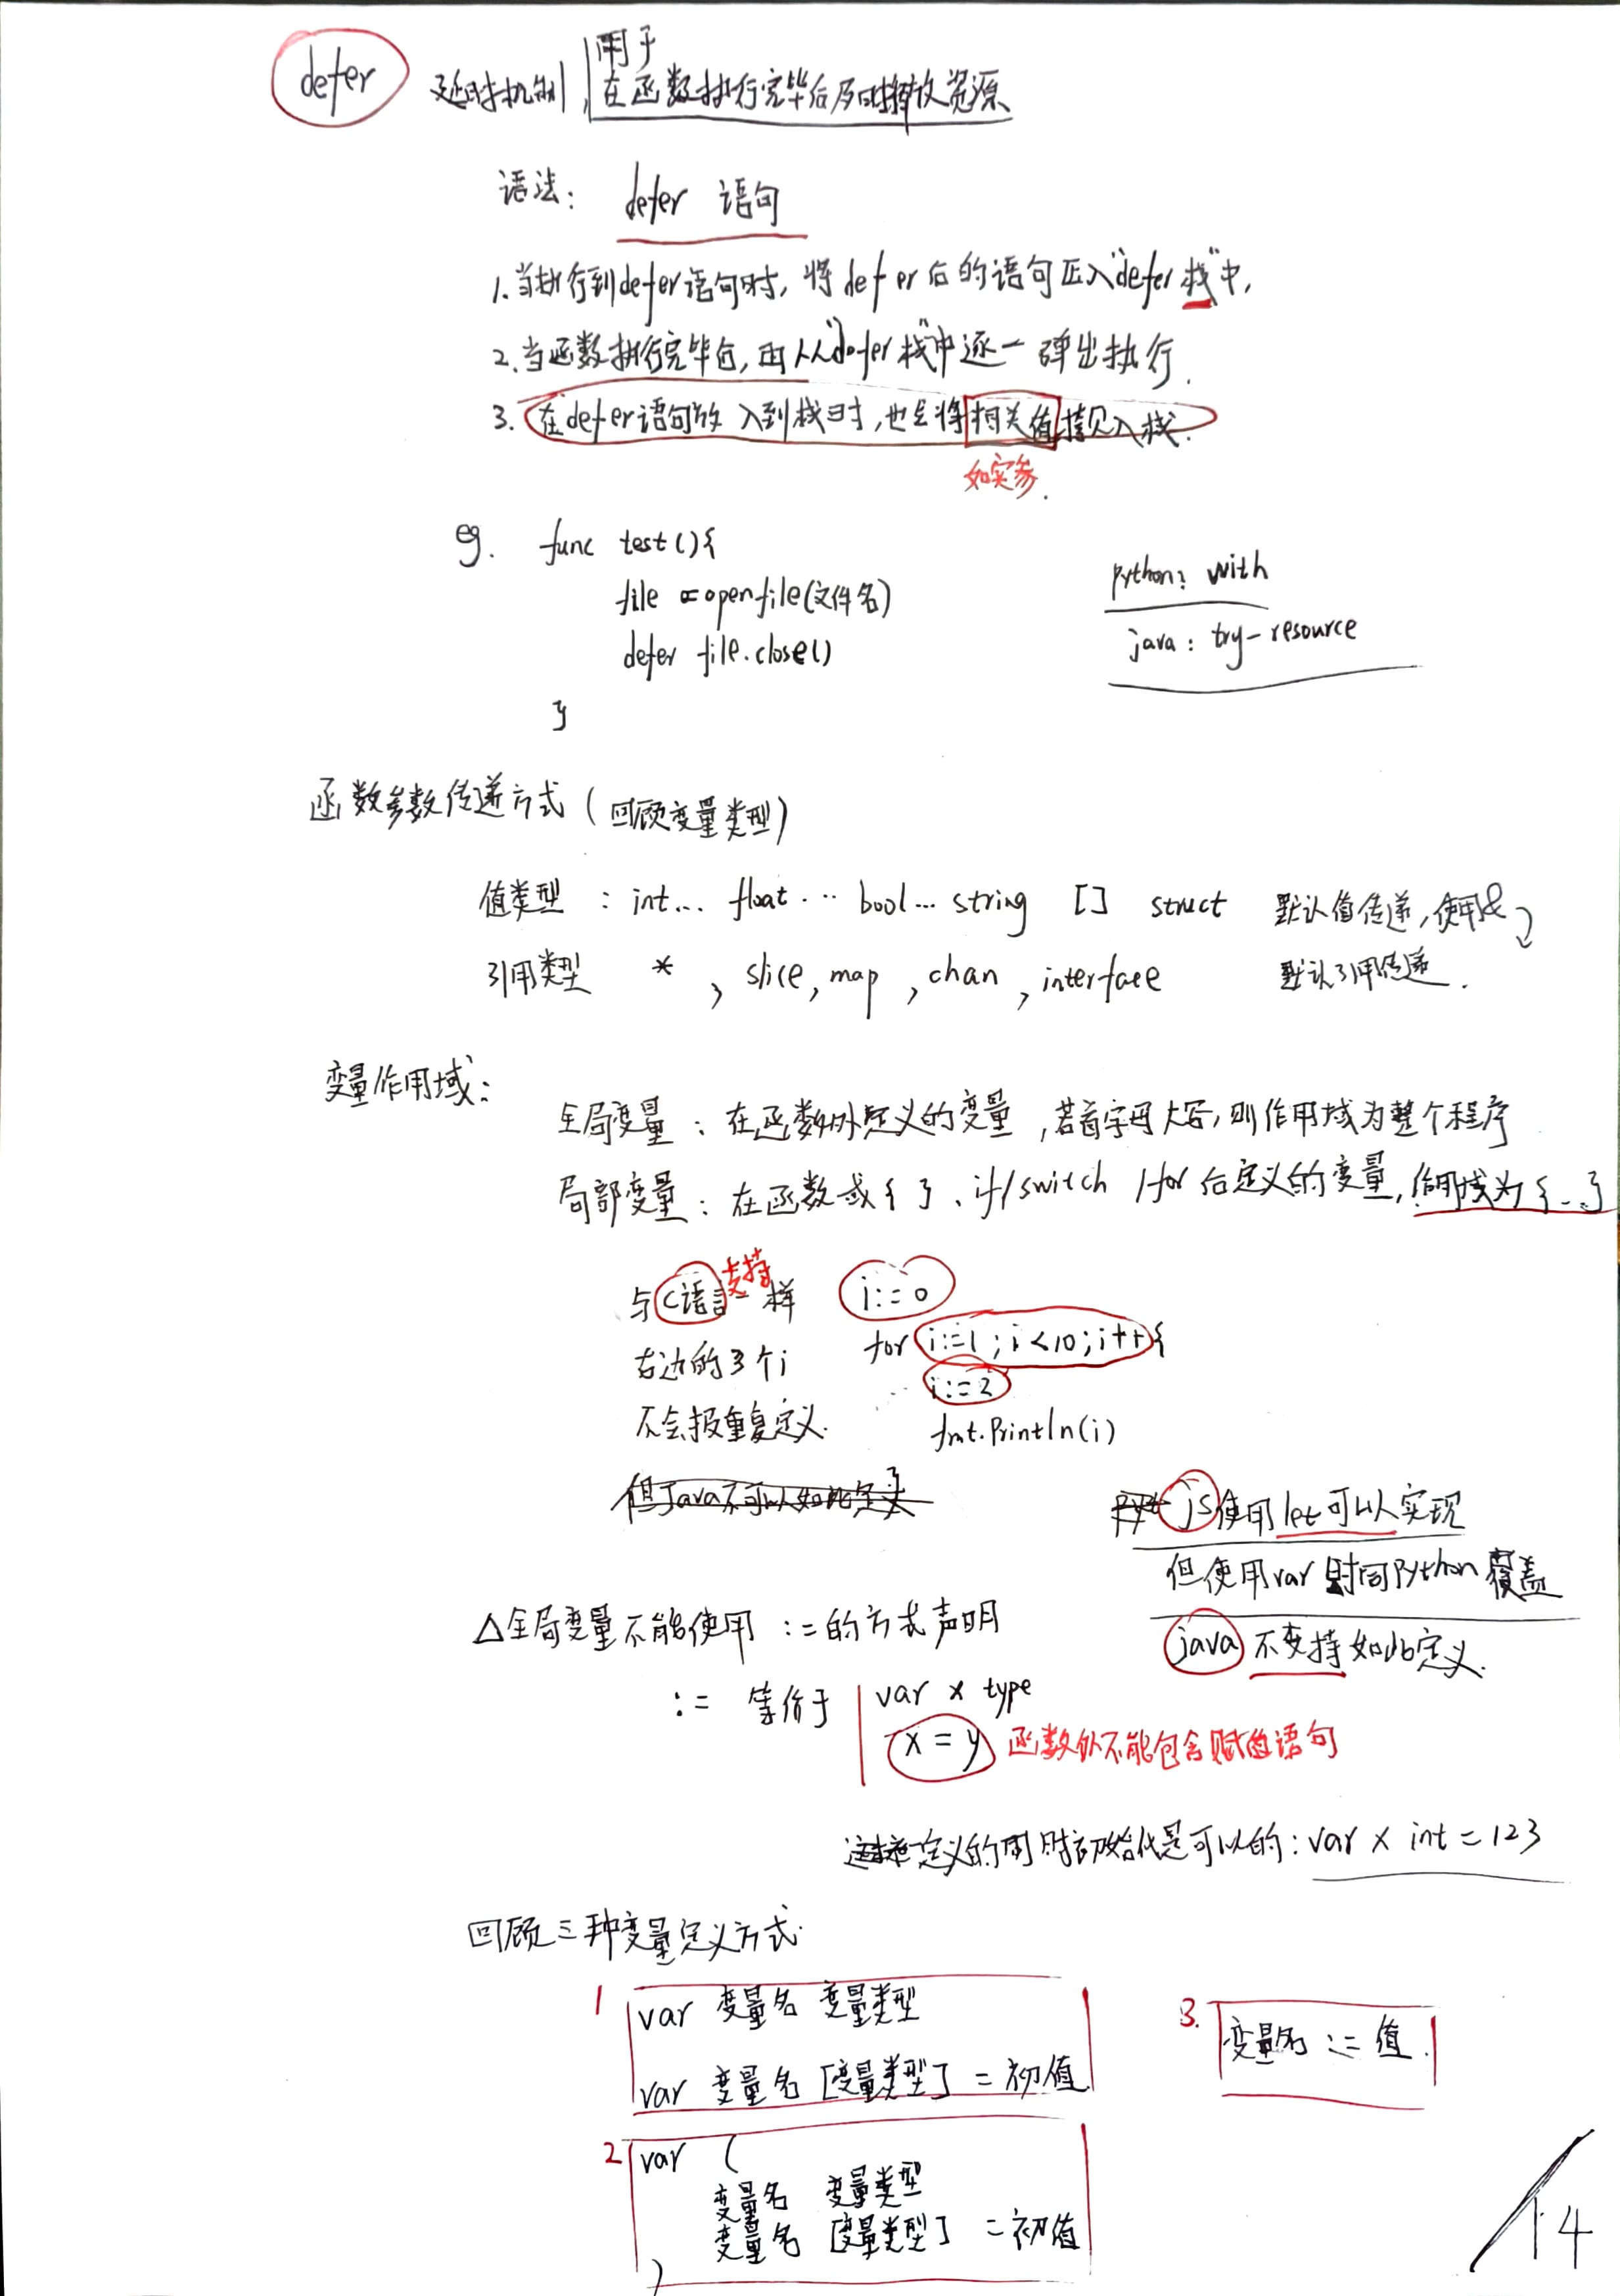 defer 延时机制，用于在函数执行完毕后及时释放资源
语法： defer 语句
1. 当执行到defer语句时，将defer后的语句压入"defer栈"中，
2. 当函数执行完毕后，再从"defer栈"中逐一弹出执行.
3. 在defer语句放入到栈时，也会将相关值拷贝入栈.
如实参.
eg. func test(){
file = openfile(文件名)
defer file.close()
}
python: with
java: try-resource
函数参数传递方式（回顾变量类型）
值类型 : int... float... bool... string [] struct 默认值传递，使用&
引用类型 * , slice, map , chan , interface 默认引用传递.
变量作用域：
全局变量：在函数外定义的变量，若首字母大写，则作用域为整个程序
局部变量：在函数或{ }、if/switch/for后定义的变量，作用域为{...}
与C语言一样 支持
右边的3个i
不会报重复定义.
i:=0
for i:=1; i<10; i++{
i:=2
fmt.Println(i)
}
但Java不可以如此定义
js使用let可以实现
但使用var时同Python覆盖
java 不支持如此定义.
△全局变量不能使用 := 的方式声明
:= 等价于 var x type
x = y 函数外不能包含赋值语句
定义的同时初始化是可以的：var x int = 123
回顾三种变量定义方式.
1 var 变量名 变量类型
var 变量名 [变量类型] = 初值
3. 变量名 := 值.
2 var (
变量名 变量类型
变量名 [变量类型] = 初值
)
14